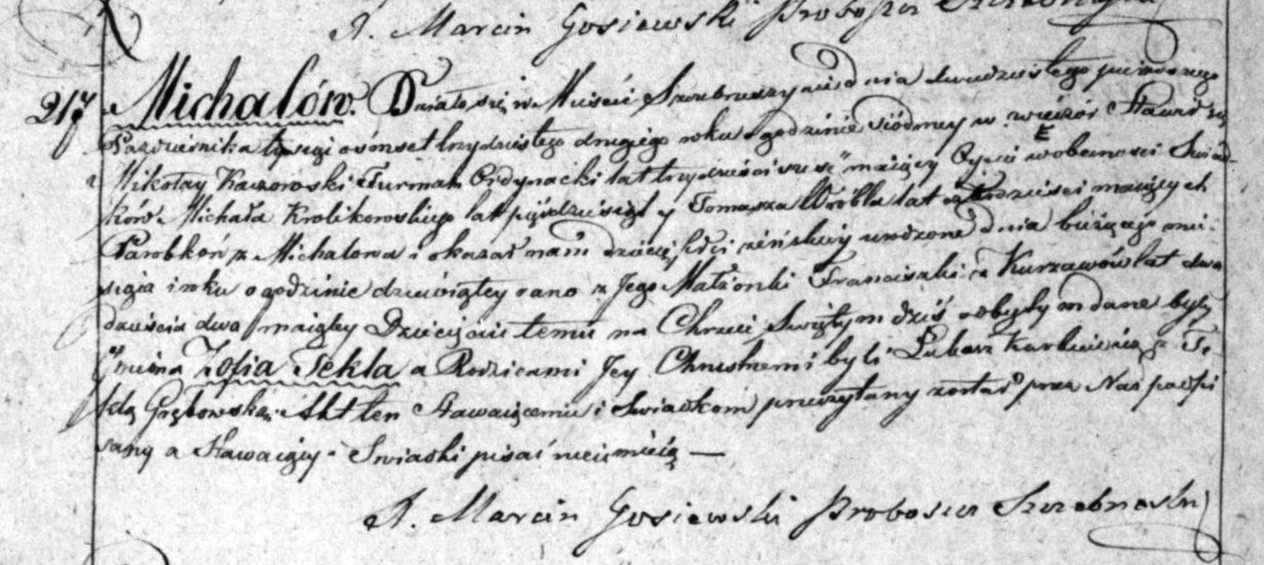 X. Marcin Gosiewski Proboszcz
217 Michalów. Działo się w Mieście Szczebrzeszynie dnia dwudziestego pierwszego
Października tysiąc osiemset trzydziestego drugiego roku o godzinie siódmey w wieczór Stawił się
Mikołay Kaczorowski Furman Ordynacki lat trzydzieści sześć maiący Oyciec w obecności Świad-
ków Michała Krolikowskiego lat pięćdziesiąt y Tomasza Wróbla lat czterdzieści maiących
Parobków z Michalowa i okazał nam dziecię płci żeńskiey urodzone dnia bieżącego mie-
siąca i roku o godzinie dziewiątey rano z Jego Małżonki Franciszki z Kurzawów lat dwa
dzieścia dwa maiącey Dziecięciu temu na Chrzcie Świętym dziś odbytym dane były
Imiona Zofia Tekla a Rodzicami Jey Chrzestnemi byli Łukasz z Te-
klą Grębowską. Akt ten Stawaiącemu i Swiadkom przeczytany został przez Nas podpi
sany a Stawaiący i Swiadki pisać nieumieią —
X. Marcin Gosiewski Proboszcz Szczebrzeski